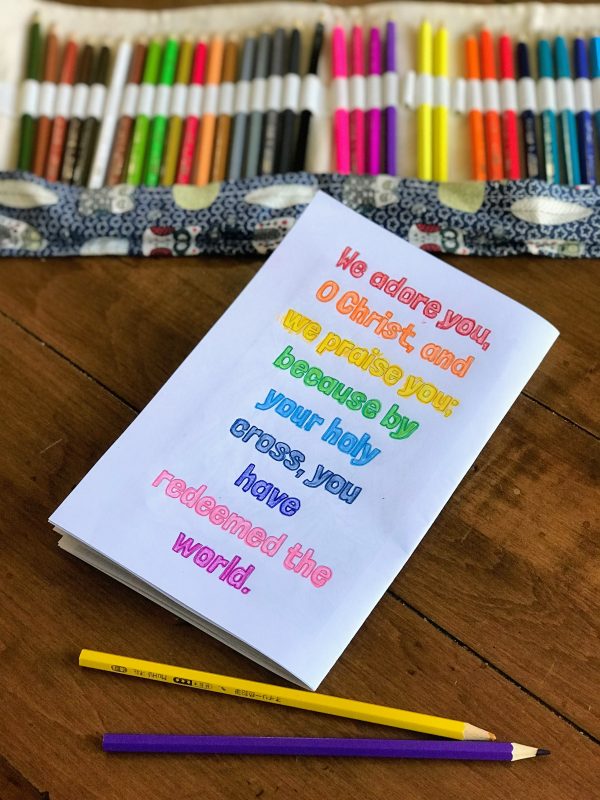 We adore you,
O Christ, and
we praise you;
because by
your holy
cross, you
have
redeemed the
world.